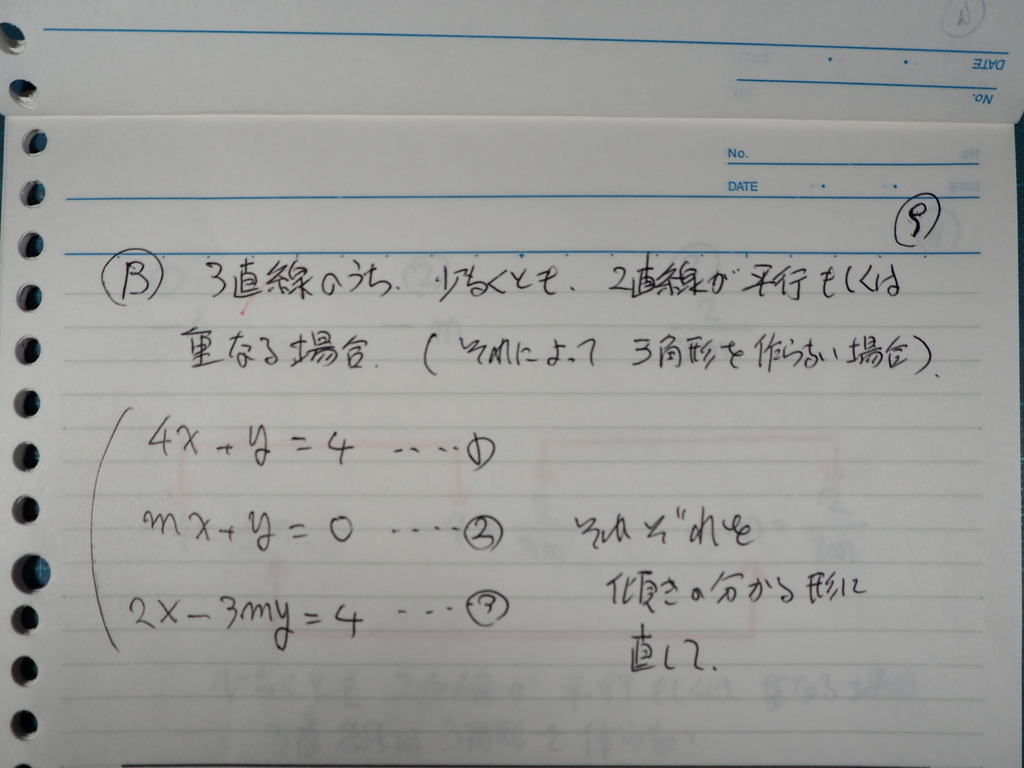 DATE
No.
No.
DATE
⑨
Ⓑ 3直線のうち、少なくとも、2直線が平行もしくは
重なる場合.(それによって 三角形を作らない場合).
4x + y = 4 ‥‥‥①
mx + y = 0 ‥‥‥②
2x - 3my = 4 ‥‥‥③
それぞれを
傾きの分かる形に
直して、